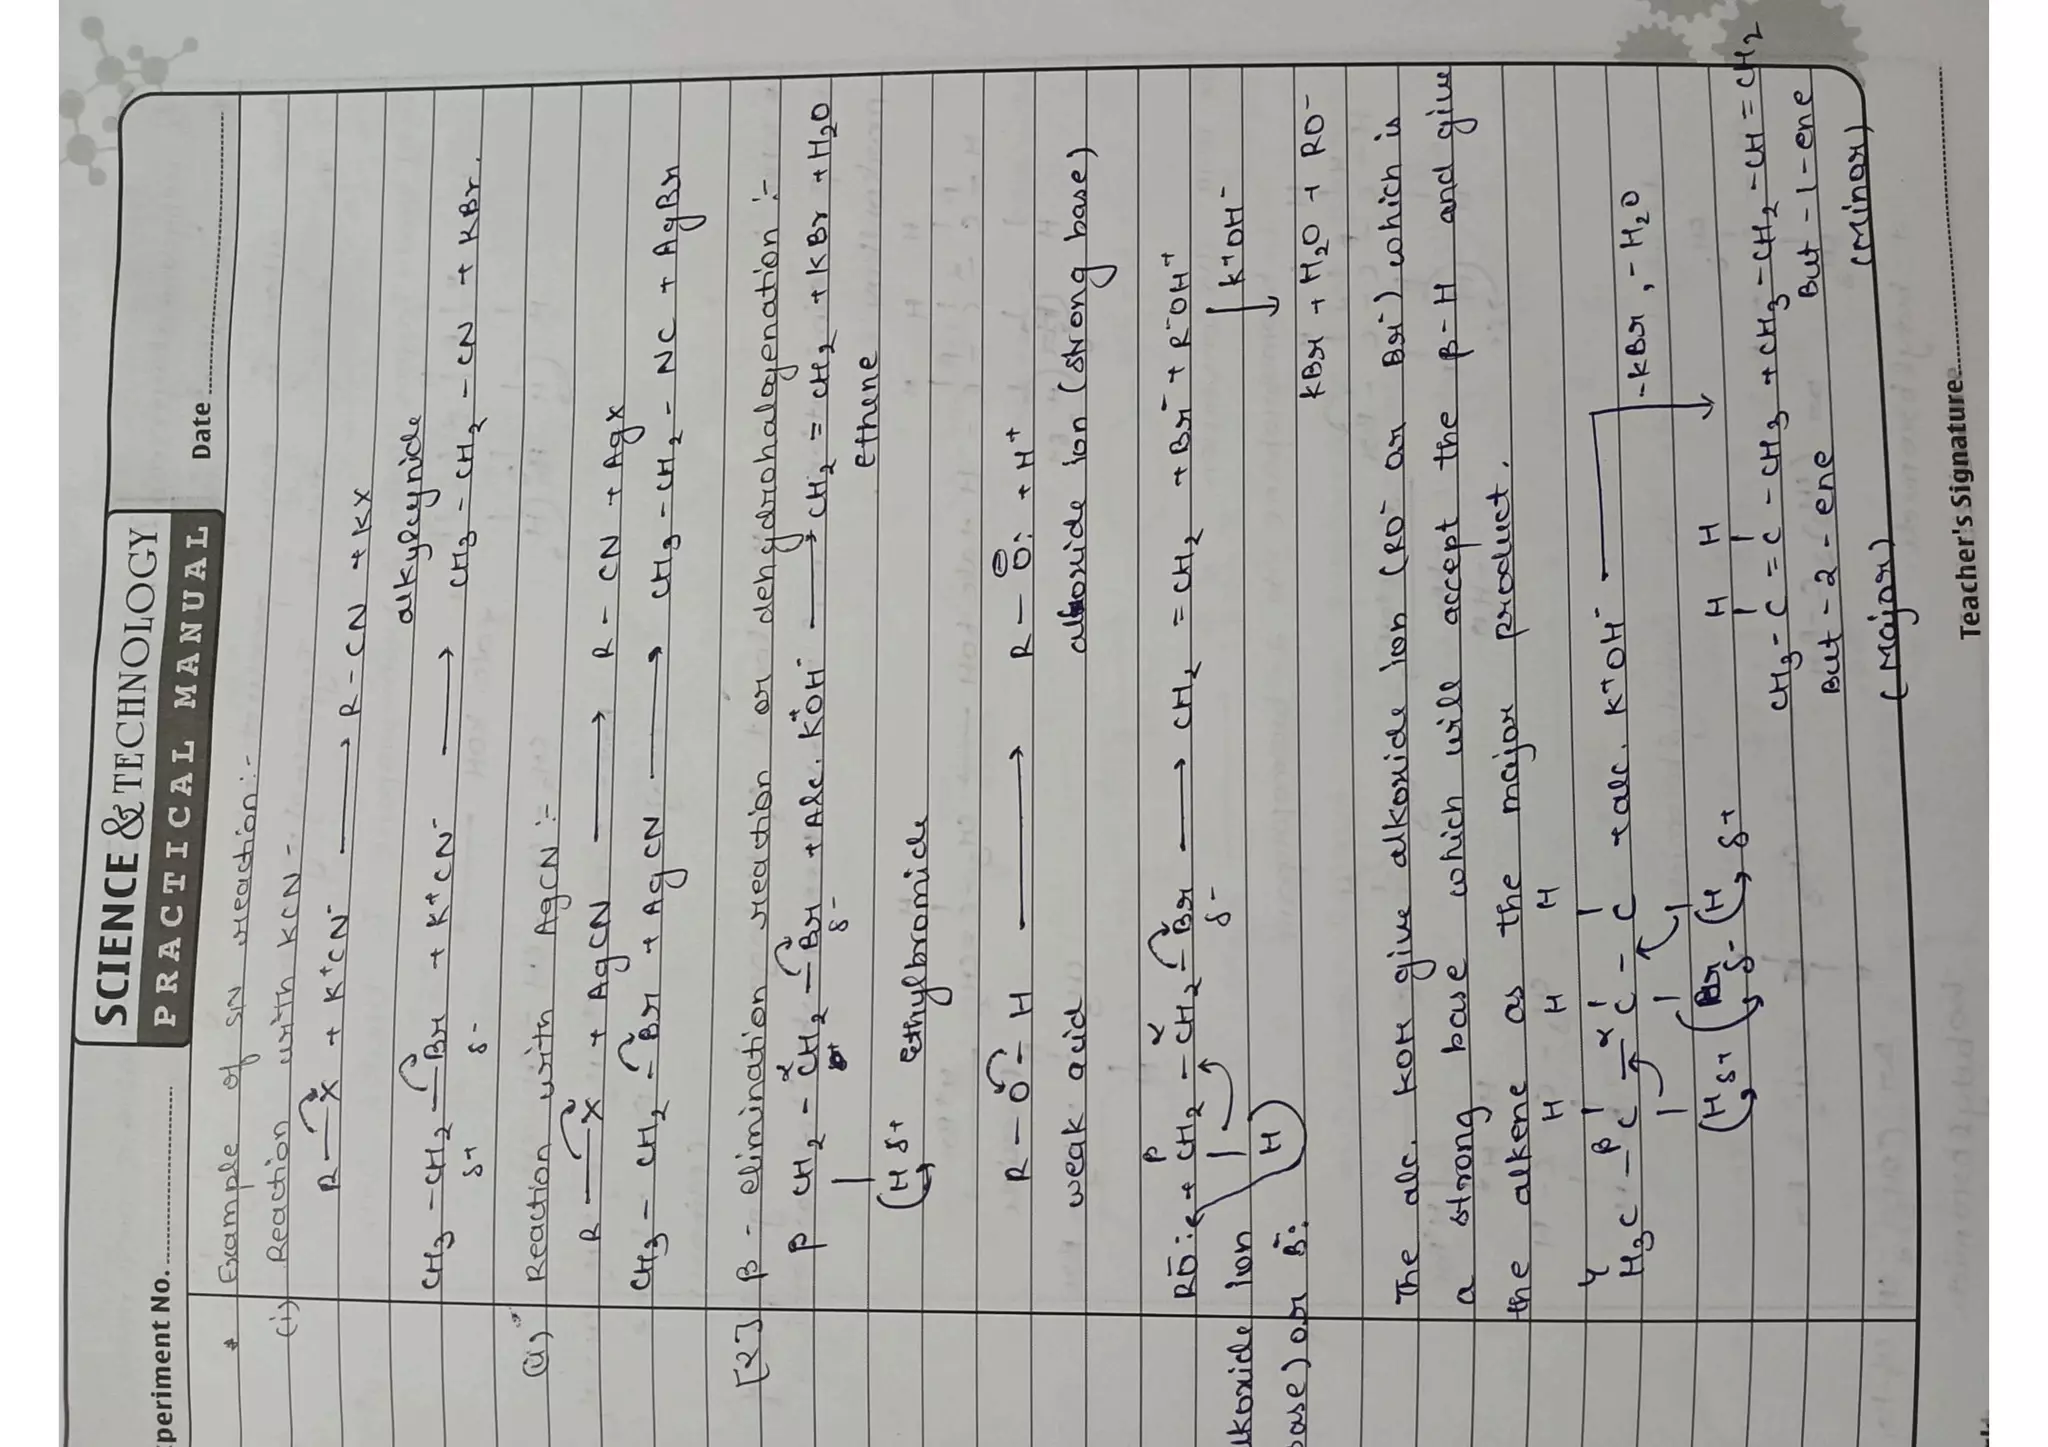 SCIENCE & TECHNOLOGY
PRACTICAL MANUAL
xperiment No. Date
* Example of SN reaction:-
(i) Reaction with KCN -
R — X + K⁺CN⁻ ⟶ R - CN + KX
alkylcynide
CH₃ - CH₂ — Br + K⁺CN⁻ ⟶ CH₃ - CH₂ - CN + KBr.
δ+ δ-
(ii) Reaction with AgCN :-
R — X + AgCN ⟶ R - CN + AgX
CH₃ - CH₂ - Br + AgCN ⟶ CH₃ - CH₂ - NC + AgBr
[2] β - elimination reaction or dehydrohalogenation :-
β CH₂ - CH₂ - Br + Alc. K⁺OH⁻ ⟶ CH₂ = CH₂ + KBr + H₂O
α δ-
(H δ+ ethylbromide ethene
R - O - H ⟶ R - O: + H⁺
⊖
weak acid alkoxide ion (strong base)
β α
RO⁻: + CH₂ - CH₂ - Br ⟶ CH₂ = CH₂ + Br⁻ + R⁻OH⁺
δ-
lkoxide ion H K⁺OH⁻
base) or B⁻: KBr + H₂O + RO⁻
The alc. KOH give alkoxide ion (RO⁻ or Br⁻) which is
a strong base which will accept the β-H and give
the alkene as the major product.
H H H
γ β α
H₃C - C - C - C + alc. K⁺OH⁻ -KBr, -H₂O
(H δ+ (Br δ- (H δ+
H H
CH₃ - C = C - CH₃ + CH₃ - CH₂ - CH = CH₂
But - 2 - ene But - 1 - ene
(Major) (Minor)
Teacher's Signature